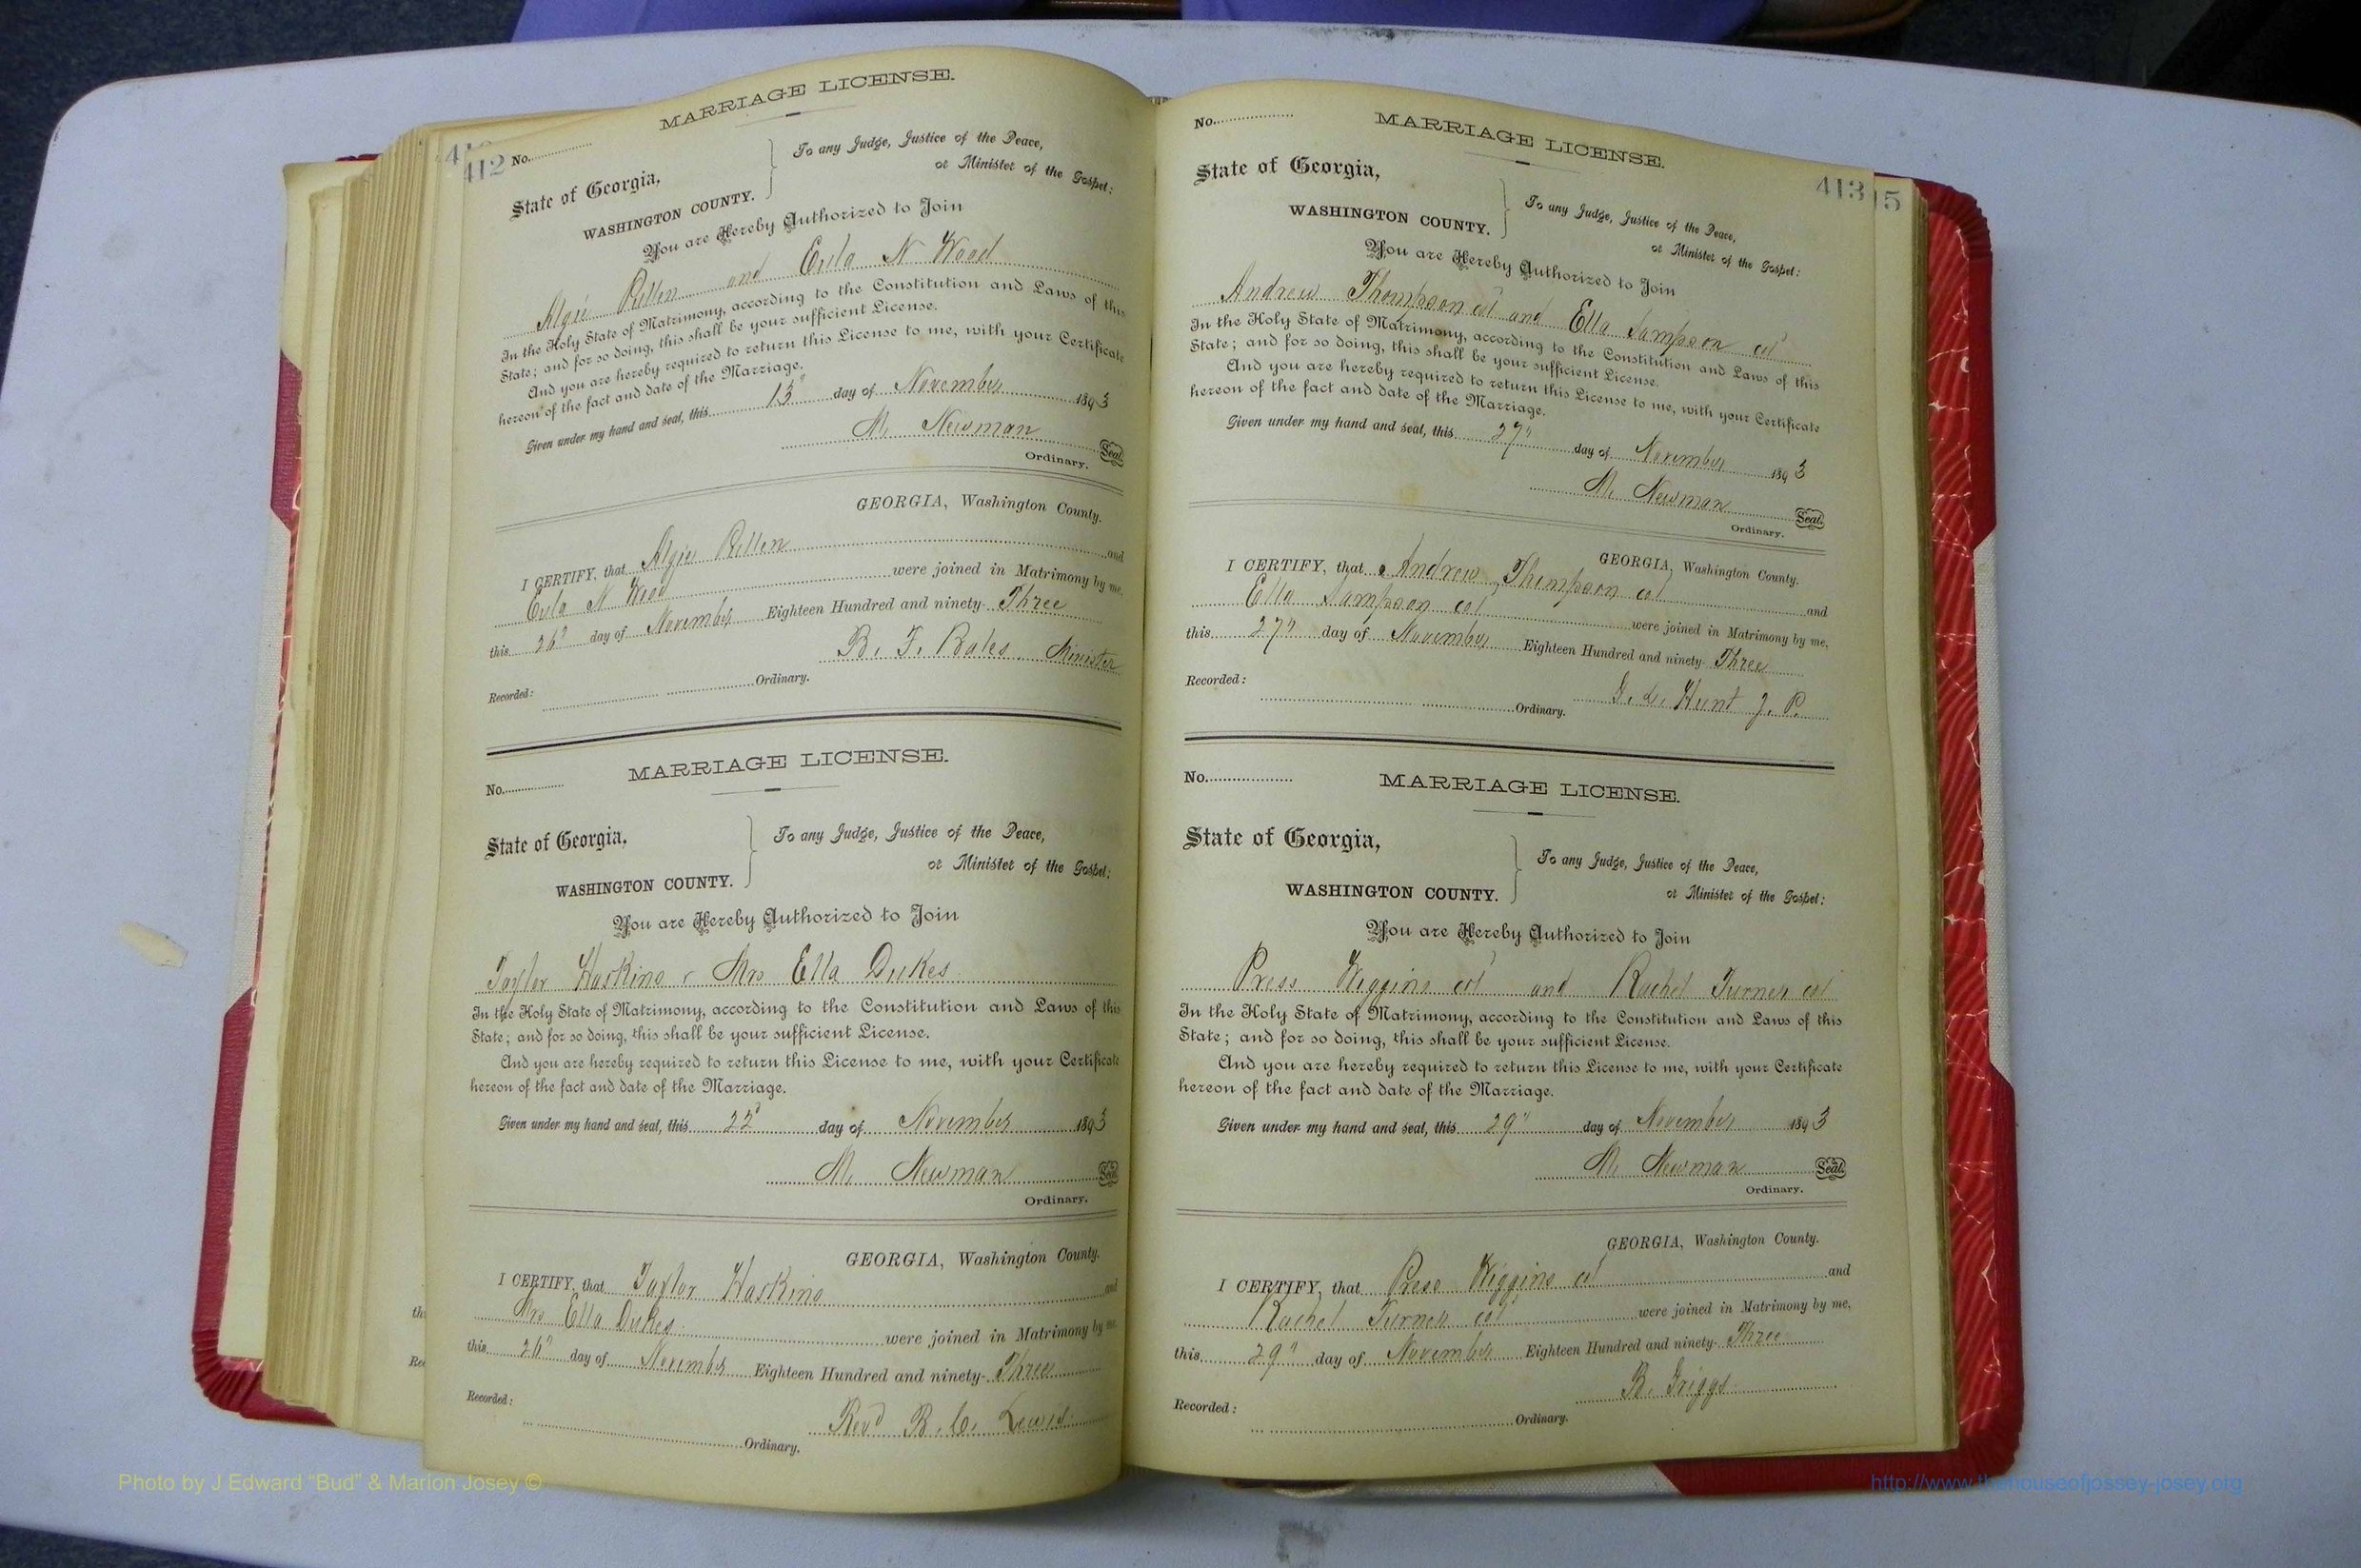 412 No.
MARRIAGE LICENSE.
State of Georgia,
WASHINGTON COUNTY.
To any Judge, Justice of the Peace,
or Minister of the Gospel:
You are Hereby Authorized to Join
Algie and Eula N Wood
In the Holy State of Matrimony, according to the Constitution and Laws of this
State; and for so doing, this shall be your sufficient License.
And you are hereby required to return this License to me, with your Certificate
hereon of the fact and date of the Marriage.
Given under my hand and seal, this 13" day of November 1893
M. Newman Seal.
Ordinary.
GEORGIA, Washington County.
I CERTIFY, that Algie and
Eula N Wood were joined in Matrimony by me,
this 26" day of November Eighteen Hundred and ninety- Three
B. F. Bales. Minister
Recorded:
Ordinary.
MARRIAGE LICENSE.
No.
State of Georgia,
WASHINGTON COUNTY.
To any Judge, Justice of the Peace,
or Minister of the Gospel:
You are Hereby Authorized to Join
Taylor Haskins & Mrs Ella Dukes
In the Holy State of Matrimony, according to the Constitution and Laws of this
State; and for so doing, this shall be your sufficient License.
And you are hereby required to return this License to me, with your Certificate
hereon of the fact and date of the Marriage.
Given under my hand and seal, this 22" day of November 1893
M. Newman Seal.
Ordinary.
GEORGIA, Washington County.
I CERTIFY, that Taylor Haskins and
Mrs Ella Dukes were joined in Matrimony by me.
this 26" day of November Eighteen Hundred and ninety- Three
Revd B. C. Lewis
Recorded:
Ordinary.
No.
MARRIAGE LICENSE.
413 15
State of Georgia,
WASHINGTON COUNTY.
To any Judge, Justice of the Peace,
or Minister of the Gospel:
You are Hereby Authorized to Join
Andrew Thompson col and Ella Sampson col
In the Holy State of Matrimony, according to the Constitution and Laws of this
State; and for so doing, this shall be your sufficient License.
And you are hereby required to return this License to me, with your Certificate
hereon of the fact and date of the Marriage.
Given under my hand and seal, this 27" day of November 1893
M. Newman Seal.
Ordinary.
GEORGIA, Washington County.
I CERTIFY, that Andrew Thompson col and
Ella Sampson col were joined in Matrimony by me,
this 27" day of November Eighteen Hundred and ninety- Three
Hunt J. P.
Recorded:
Ordinary.
No.
MARRIAGE LICENSE.
State of Georgia,
WASHINGTON COUNTY.
To any Judge, Justice of the Peace,
or Minister of the Gospel:
You are Hereby Authorized to Join
Press Wiggins col and Rachel Turner col
In the Holy State of Matrimony, according to the Constitution and Laws of this
State; and for so doing, this shall be your sufficient License.
And you are hereby required to return this License to me, with your Certificate
hereon of the fact and date of the Marriage.
Given under my hand and seal, this 29" day of November 1893
M. Newman Seal.
Ordinary.
GEORGIA, Washington County.
I CERTIFY, that Press Wiggins col and
Rachel Turner col were joined in Matrimony by me,
this 29" day of November Eighteen Hundred and ninety- Three
B. Griggs
Recorded:
Ordinary.
Photo by J Edward "Bud" & Marion Josey ©
http://www.thehouseofjossey-josey.org